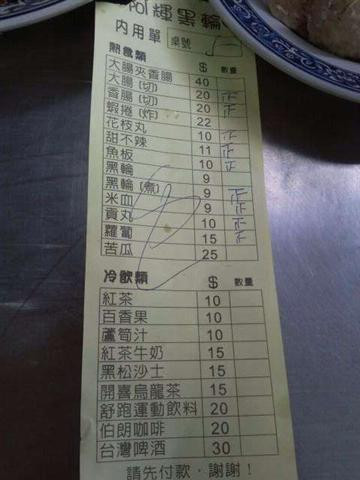 阿輝黑輪
內用單 桌號
熱食類 $ 數量
大腸夾香腸 40
大腸(切) 20 正
香腸(切) 20 正
蝦捲(炸) 22
花枝丸 10
甜不辣 11 正
魚板 10 正
黑輪 9
黑輪(煮) 9 正
米血 9 正
貢丸 10 正
蘿蔔 15 正
苦瓜 25
冷飲類 $ 數量
紅茶 10
百香果 10
蘆筍汁 10
紅茶牛奶 15
黑松沙士 15
開喜烏龍茶 15
舒跑運動飲料 20
伯朗咖啡 20
台灣啤酒 30
請先付款,謝謝!